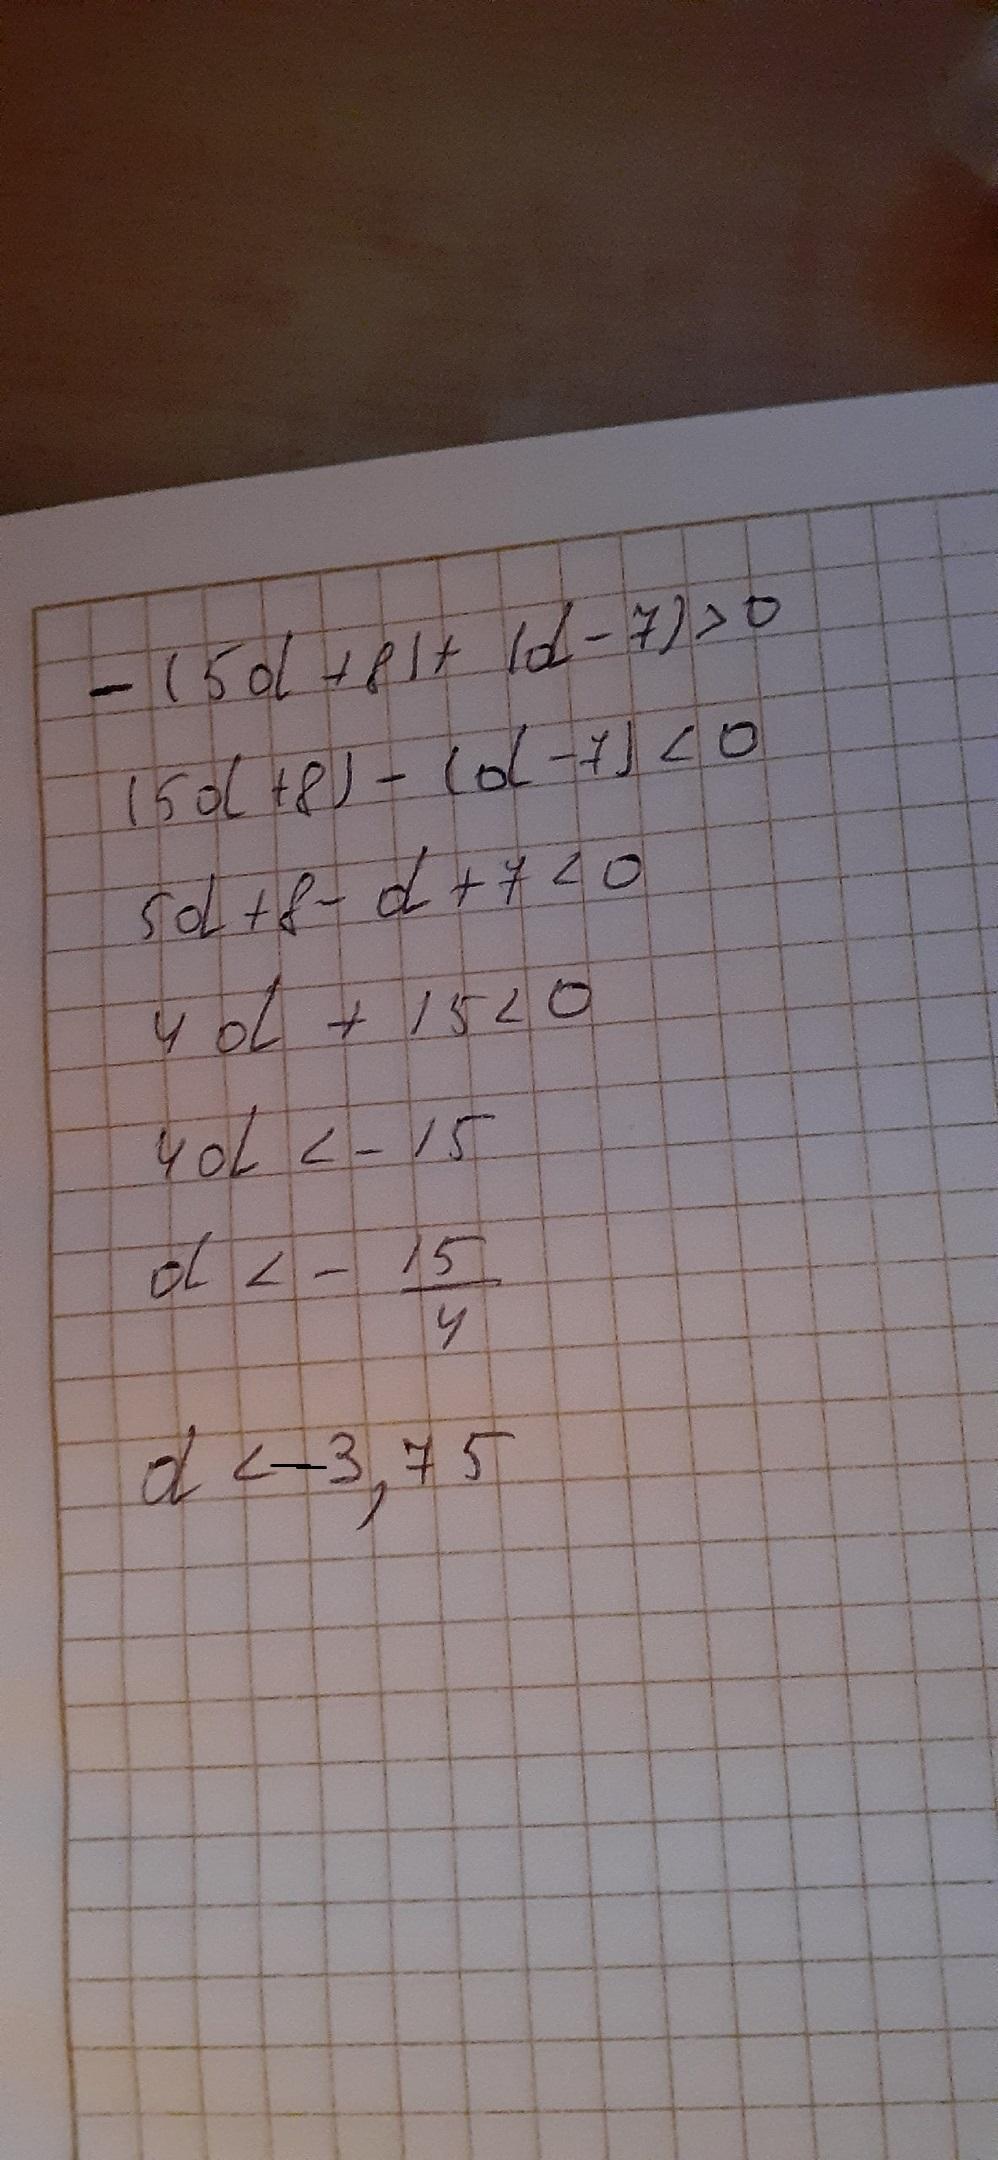 -(5d+8)+(d-7)>0
(5d+8)-(d-7)<0
5d+8-d+7<0
4d+15<0
4d<-15
d<-15/4
d<-3,75